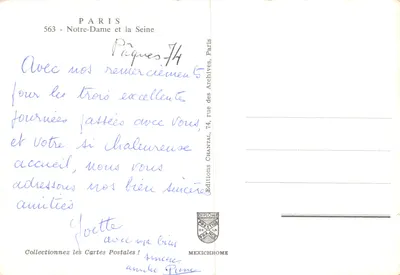 PARIS
563 - Notre-Dame et la Seine
Pâques 74
Avec nos remerciements
pour les trois excellentes
journées passées avec vous
et votre si chaleureuse
accueil, nous vous
adressons nos bien sincères
amitiés
Yvette
avec mes bien
sincères
amitiés Pierre
Collectionnez les Cartes Postales !
MEXICHROME
Editions CHANTAL, 74, rue des Archives, Paris